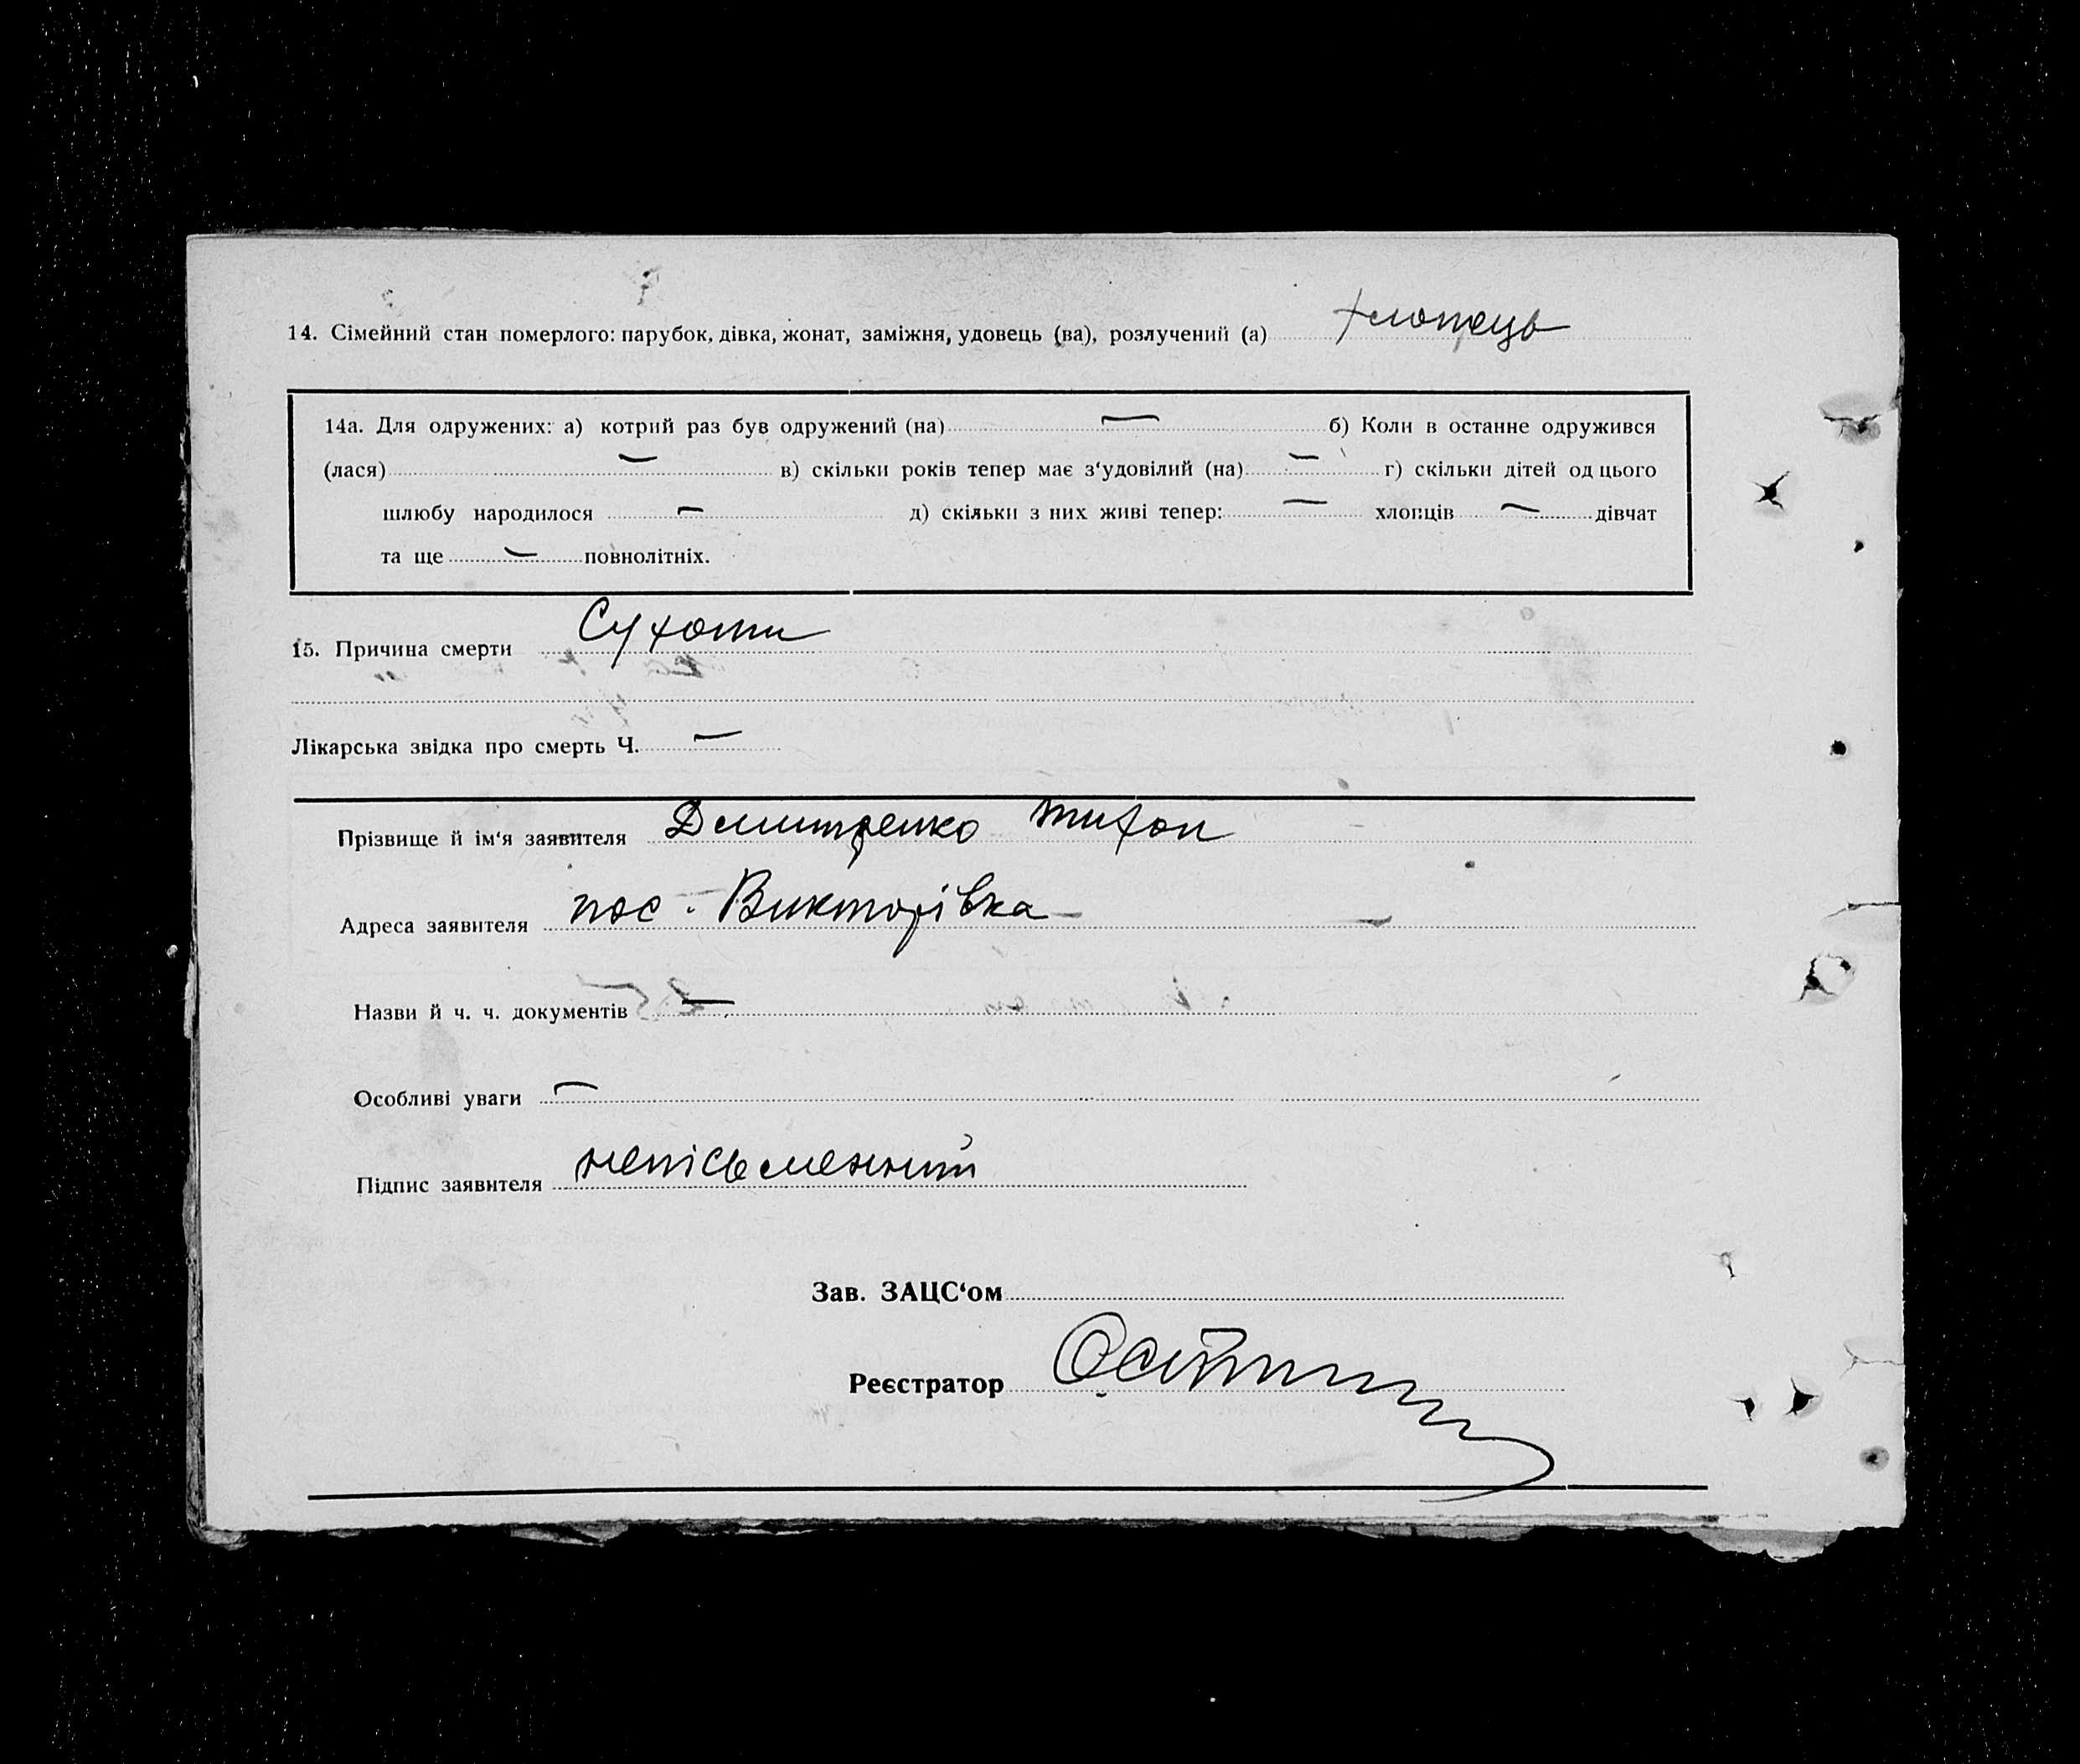 14. Сімейний стан померлого: парубок, дівка, жонат, заміжня, удовець (ва), розлучений (а) хлопець
14а. Для одружених: а) котрий раз був одружений (на) — б) Коли в останне одружився
(лася) — в) скільки років тепер має з‘удовілий (на) — г) скільки дітей од цього
шлюбу народилося — д) скільки з них живі тепер: — хлопців — дівчат
та ще — повнолітніх.
15. Причина смерти Сухоти
Лікарська звідка про смерть Ч. —
Прізвище й ім‘я заявителя Дмитренко Тихон
Адреса заявителя пос. Викторівка
Назви й ч. ч. документів —
Особливі уваги —
Підпис заявителя непісьменний
Зав. ЗАЦС‘ом
Реєстратор